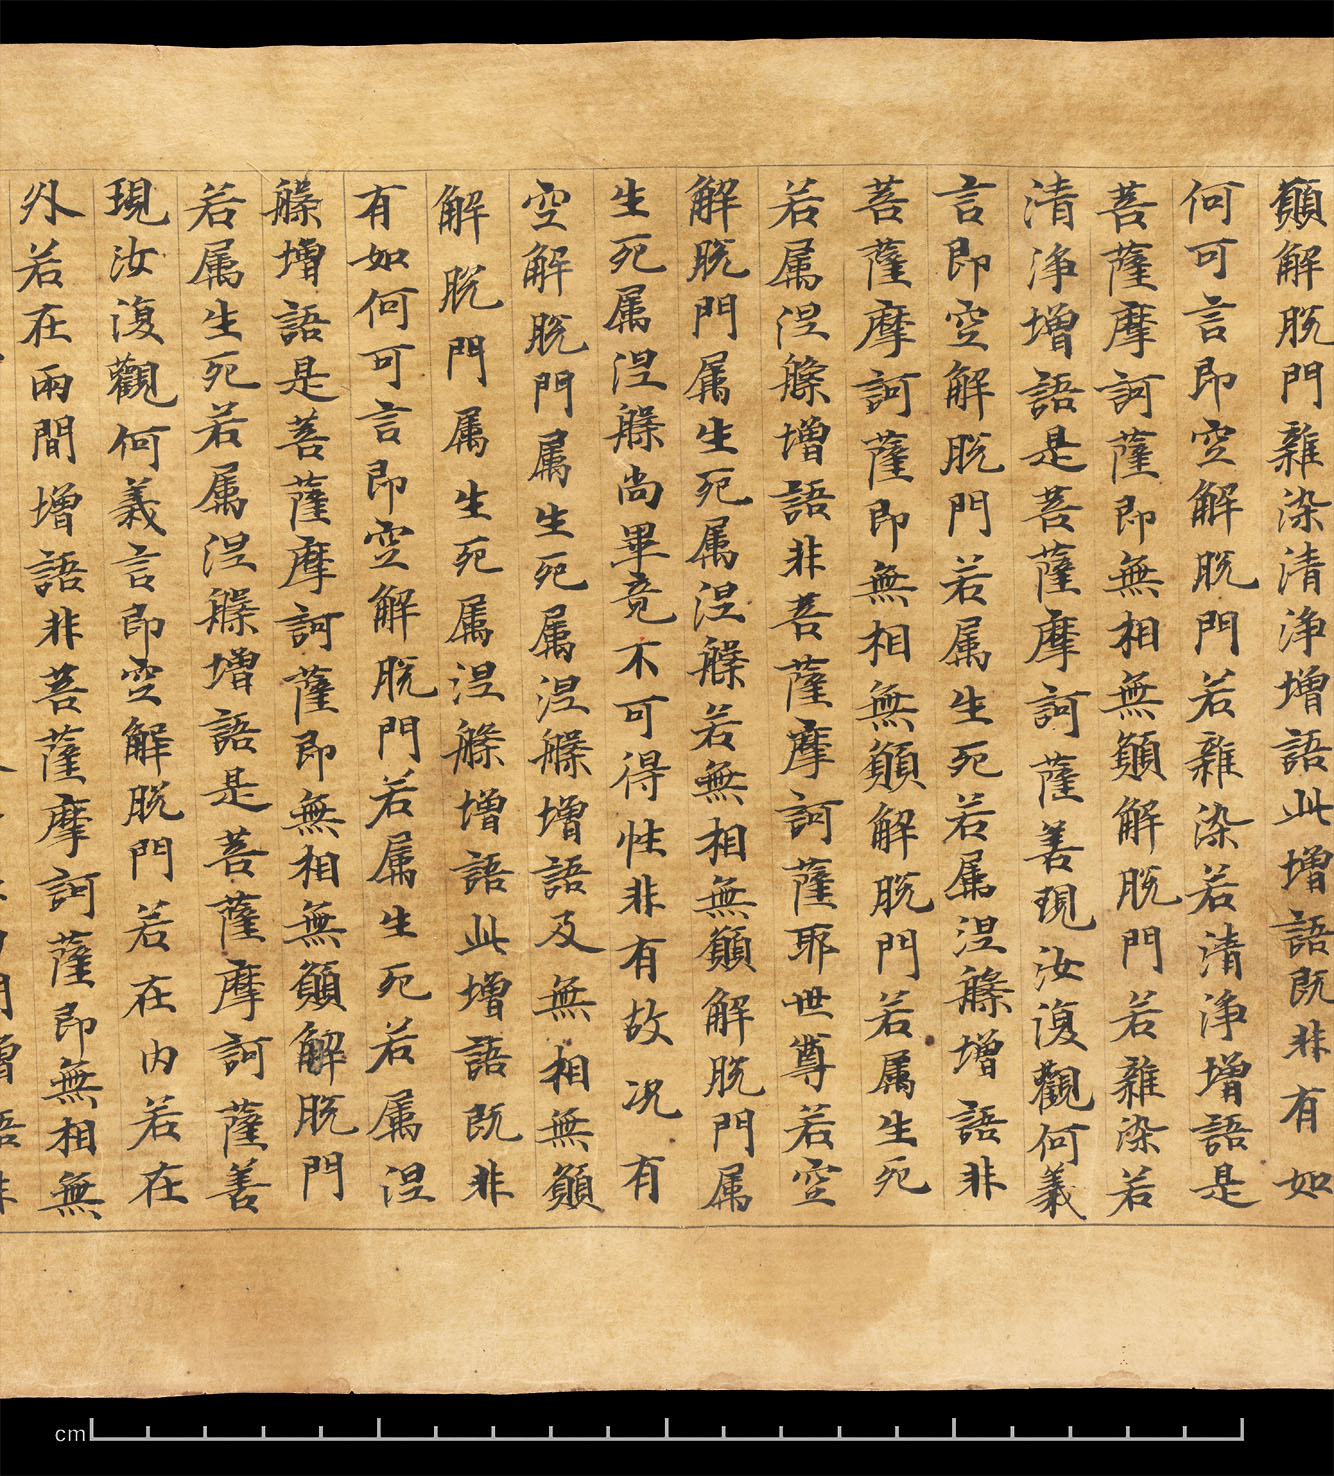 願解脱門雜染清淨增語此增語既非有如
何可言即空解脱門若雜染若清淨增語是
菩薩摩訶薩即無相無願解脱門若雜染若
清淨增語是菩薩摩訶薩善現汝復觀何義
言即空解脱門若属生死若属涅槃增語非
菩薩摩訶薩即無相無願解脱門若属生死
若属涅槃增語非菩薩摩訶薩耶世尊若空
解脱門属生死属涅槃若無相無願解脱門属
生死属涅槃尚畢竟不可得性非有故况有
空解脱門属生死属涅槃增語及無相無願
解脱門属生死属涅槃增語此增語既非
有如何可言即空解脱門若属生死若属涅
槃增語是菩薩摩訶薩即無相無願解脱門
若属生死若属涅槃增語是菩薩摩訶薩善
現汝復觀何義言即空解脱門若在内若在
外若在兩間增語非菩薩摩訶薩即無相無
cm